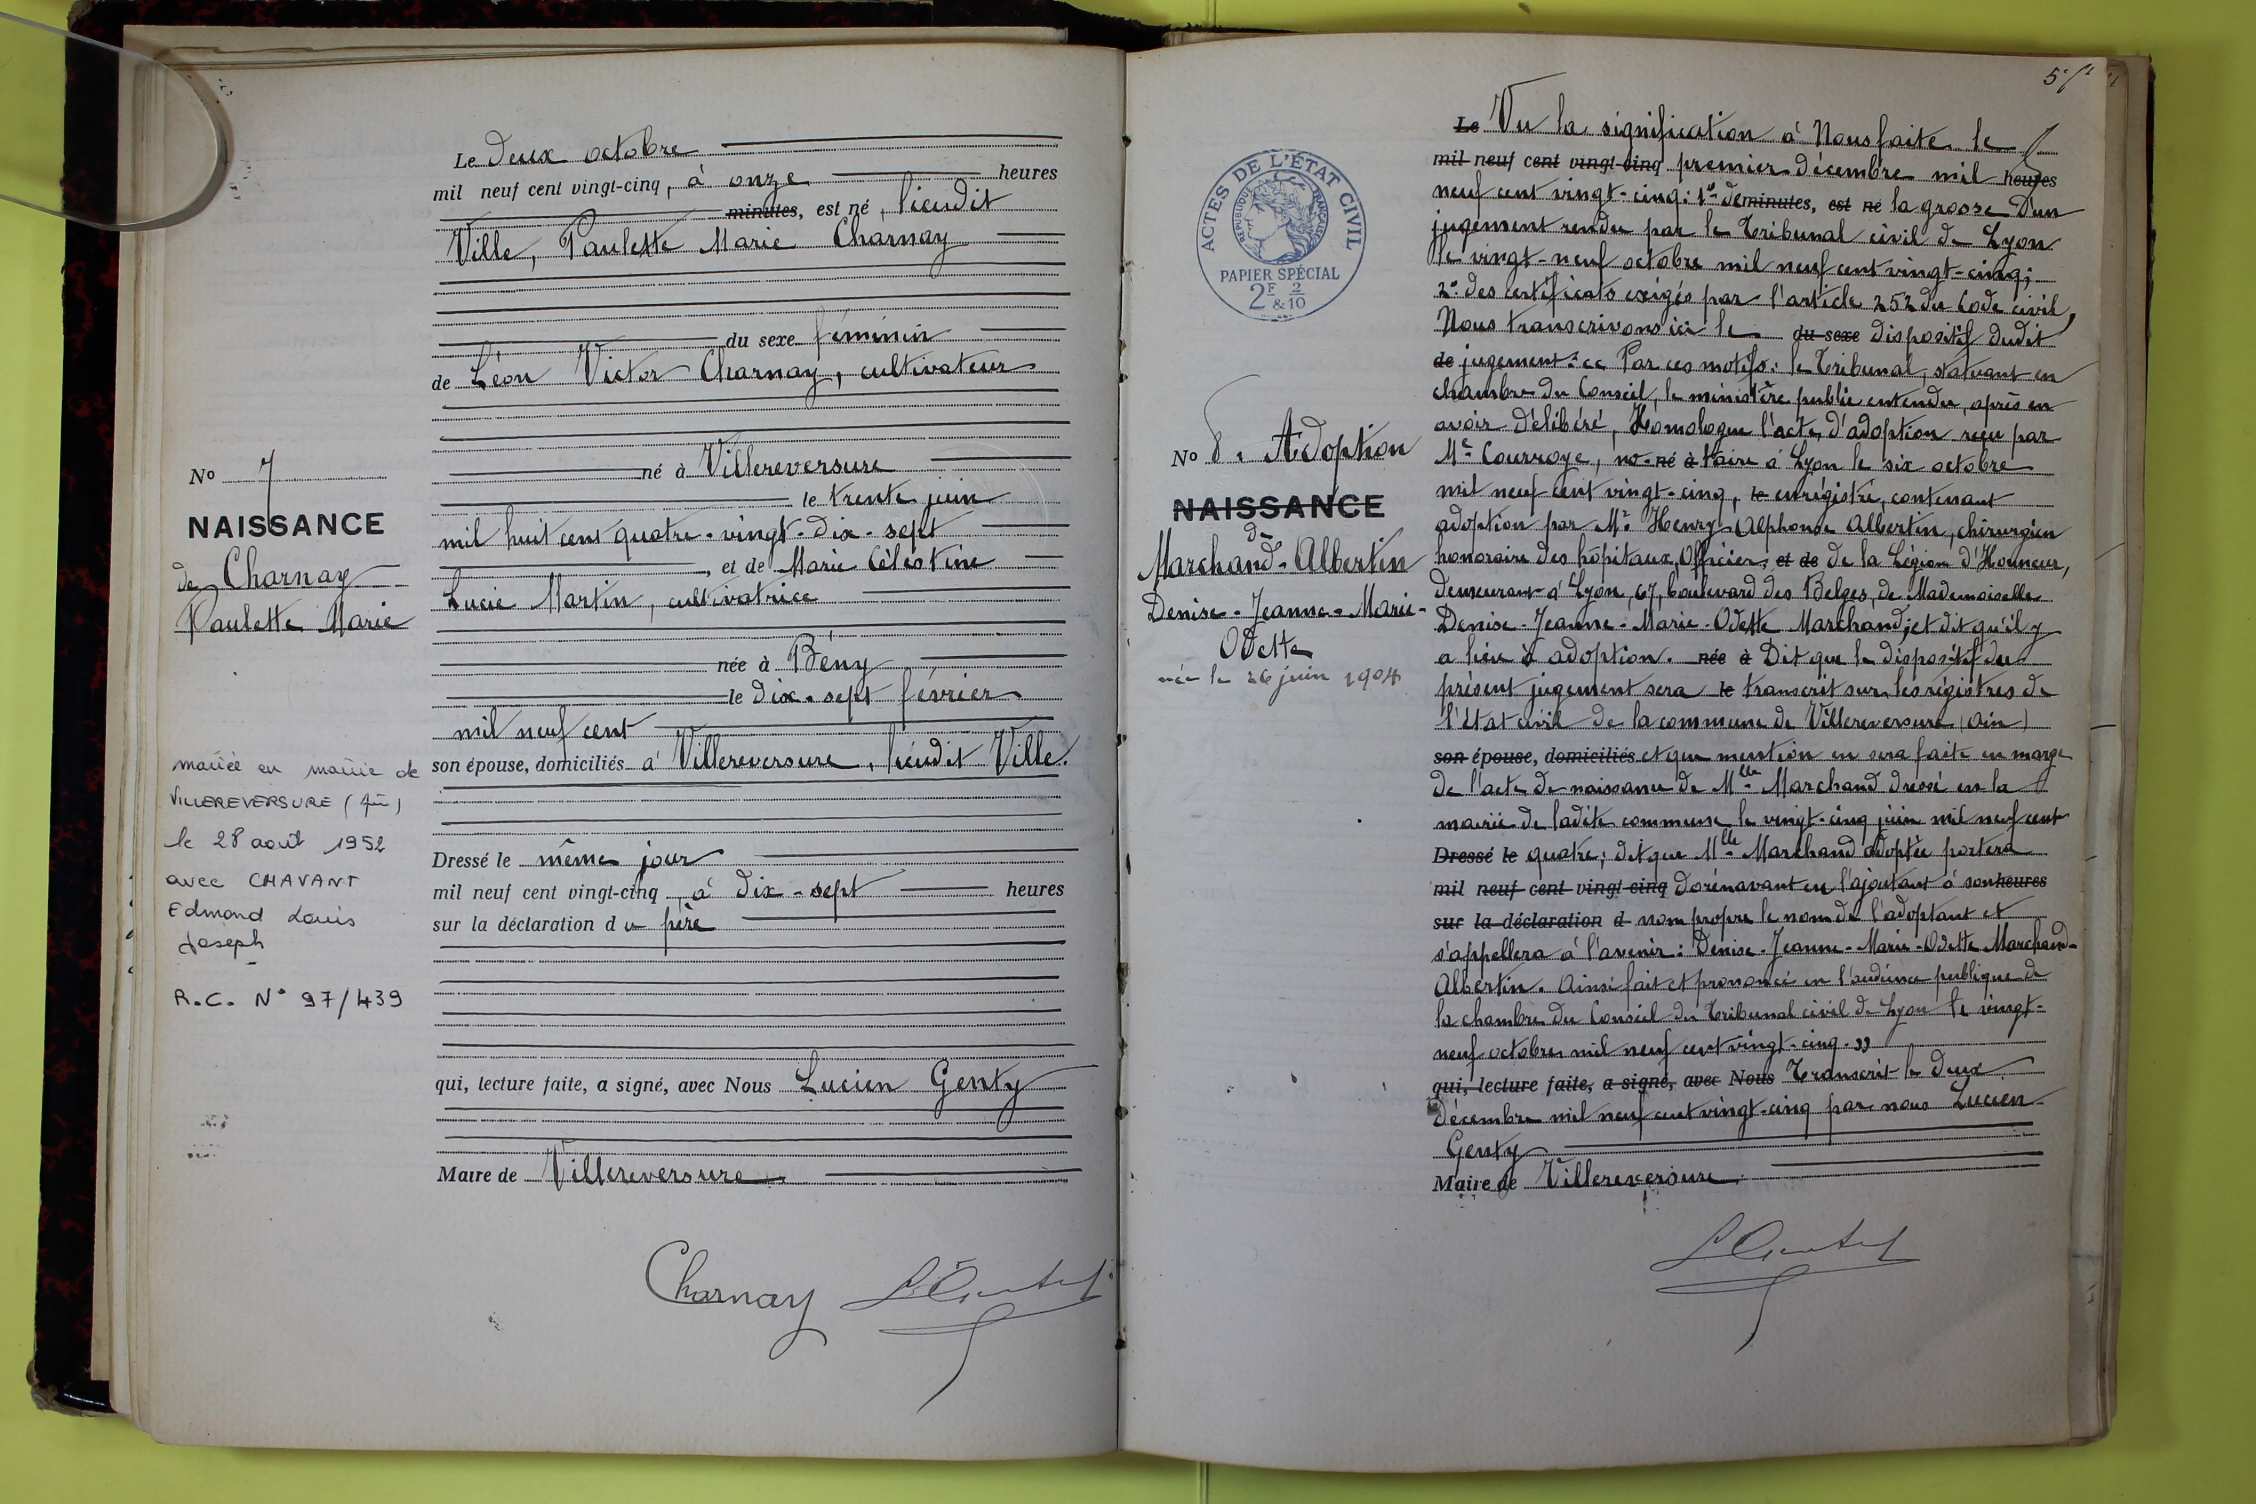 Le deux octobre
mil neuf cent vingt-cinq, à onze heures
minutes, est né, lieudit
Ville, Paulette Marie Charnay
du sexe féminin
de Léon Victor Charnay, cultivateur
né à Villereversure
le trente juin
mil huit cent quatre-vingt-dix-sept
, et de Marie Célestine
Lucie Martin, cultivatrice
née à Bény
le dix-sept février
mil neuf cent
son épouse, domiciliés à Villereversure, lieudit Ville.
Dressé le même jour
mil neuf cent vingt-cinq, à dix-sept heures
sur la déclaration du père
qui, lecture faite, a signé, avec Nous Lucien Genty
Maire de Villereversure
Charnay
No 7
NAISSANCE
de Charnay
Paulette Marie
mariée en mairie de
VILLEREVERSURE (Ain)
le 28 août 1952
avec CHAVANT
Edmond Louis
Joseph
R.C. N° 97/439
ACTES DE L'ÉTAT CIVIL
RÉPUBLIQUE FRANÇAISE
PAPIER SPÉCIAL
2F & 2/10
No 8. Adoption
NAISSANCE
de
Marchand-Albertin
Denise-Jeanne-Marie-
Odette
née le 26 juin 1904
Le Vu la signification à Nous faite le
mil neuf cent vingt-cinq premier décembre mil heures
neuf cent vingt-cinq: 1° de minutes, est né la grosse d'un
jugement rendu par le Tribunal civil de Lyon
le vingt-neuf octobre mil neuf cent vingt-cinq;
2° des certificats exigés par l'article 252 du Code civil,
Nous transcrivons ici le du sexe dispositif dudit
de jugement: "Par ces motifs: le Tribunal, statuant en
chambre du Conseil, le ministère public entendu, après en
avoir délibéré, Homologue l'acte d'adoption reçu par
Me Courroye, no- né à taire à Lyon le six octobre
mil neuf cent vingt-cinq, le enrégistré, contenant
adoption par Mr Henry-Alphonse Albertin, chirurgien
honoraire des hôpitaux, Officier, et de de la Légion d'Honneur,
demeurant à Lyon, 67, boulevard des Belges, de Mademoiselle
Denise-Jeanne-Marie-Odette Marchand; et dit qu'il y
a lieu à adoption. née à Dit que le dispositif du
présent jugement sera le transcrit sur les régistres de
l'état civil de la commune de Villereversure (Ain)
son épouse, domiciliés et que mention en sera faite en marge
de l'acte de naissance de Mlle Marchand dressé en la
mairie de ladite commune le vingt-cinq juin mil neuf cent
Dressé le quatre; dit que Mlle Marchand adoptée portera
mil neuf cent vingt-cinq dorénavant en l'ajoutant à son heures
sur la déclaration d nom propre le nom de l'adoptant et
s'appellera à l'avenir: Denise-Jeanne-Marie-Odette Marchand-
Albertin. Ainsi fait et prononcé en l'audience publique de
la chambre du Conseil du Tribunal civil de Lyon le vingt-
neuf octobre mil neuf cent vingt-cinq."
qui, lecture faite, a signé, avec Nous Transcrit le deux
décembre mil neuf cent vingt-cinq par nous Lucien
Genty
Maire de Villereversure